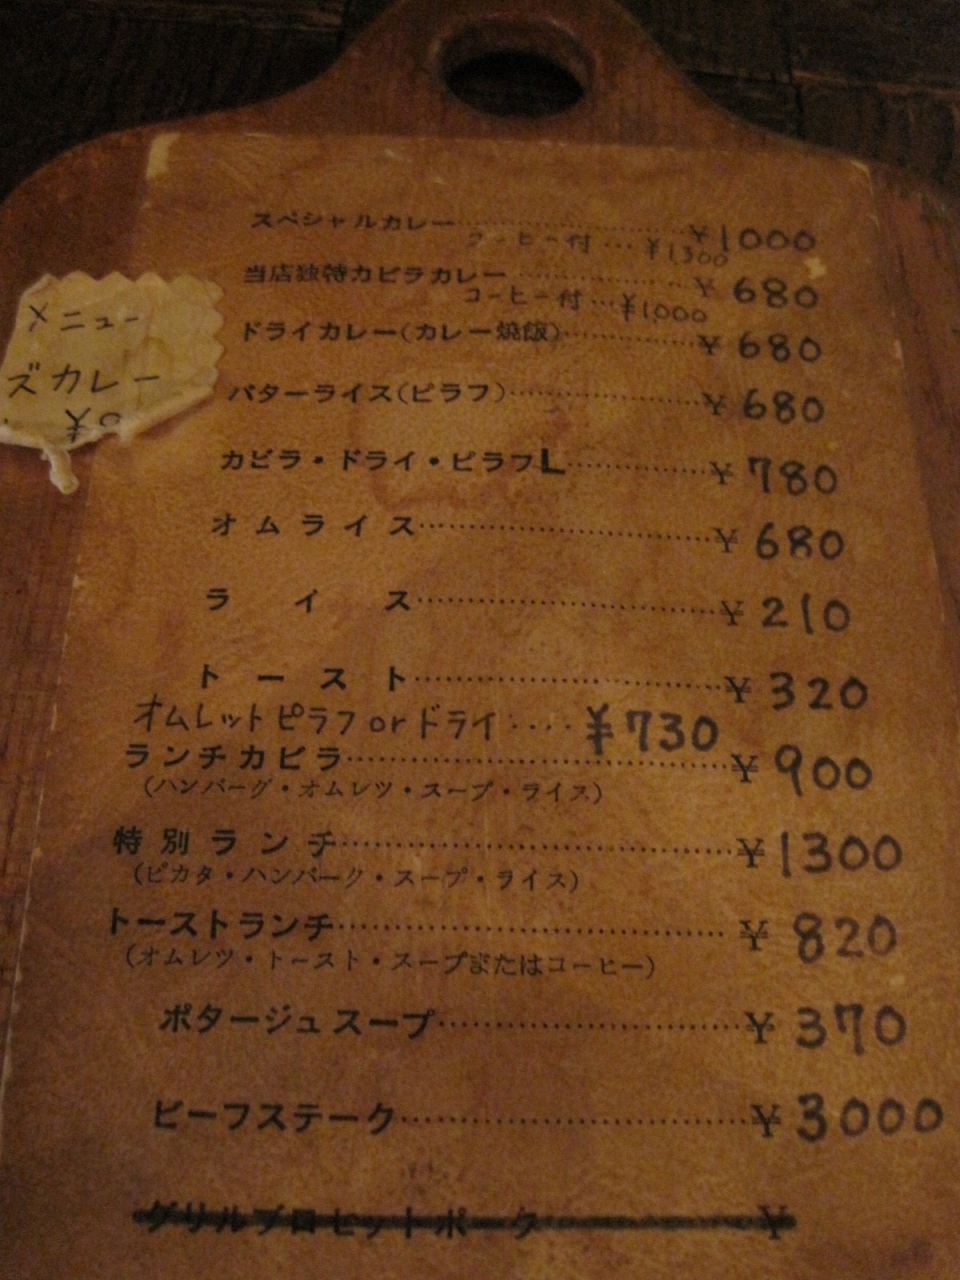 スペシャルカレー ¥1000
コーヒー付…¥1,300
当店独特カピラカレー ¥680
コーヒー付…¥1,000
ドライカレー(カレー焼飯) ¥680
バターライス(ピラフ) ¥680
カピラ・ドライ・ピラフL ¥780
オムライス ¥680
ライス ¥210
トースト ¥320
オムレットピラフorドライ ¥730
ランチカピラ ¥900
(ハンバーグ・オムレツ・スープ・ライス)
特別ランチ ¥1300
(ピカタ・ハンバーク・スープ・ライス)
トーストランチ ¥820
(オムレツ・トースト・スープまたはコーヒー)
ポタージュスープ ¥370
ビーフステーク ¥3000
メニュー
ズカレー